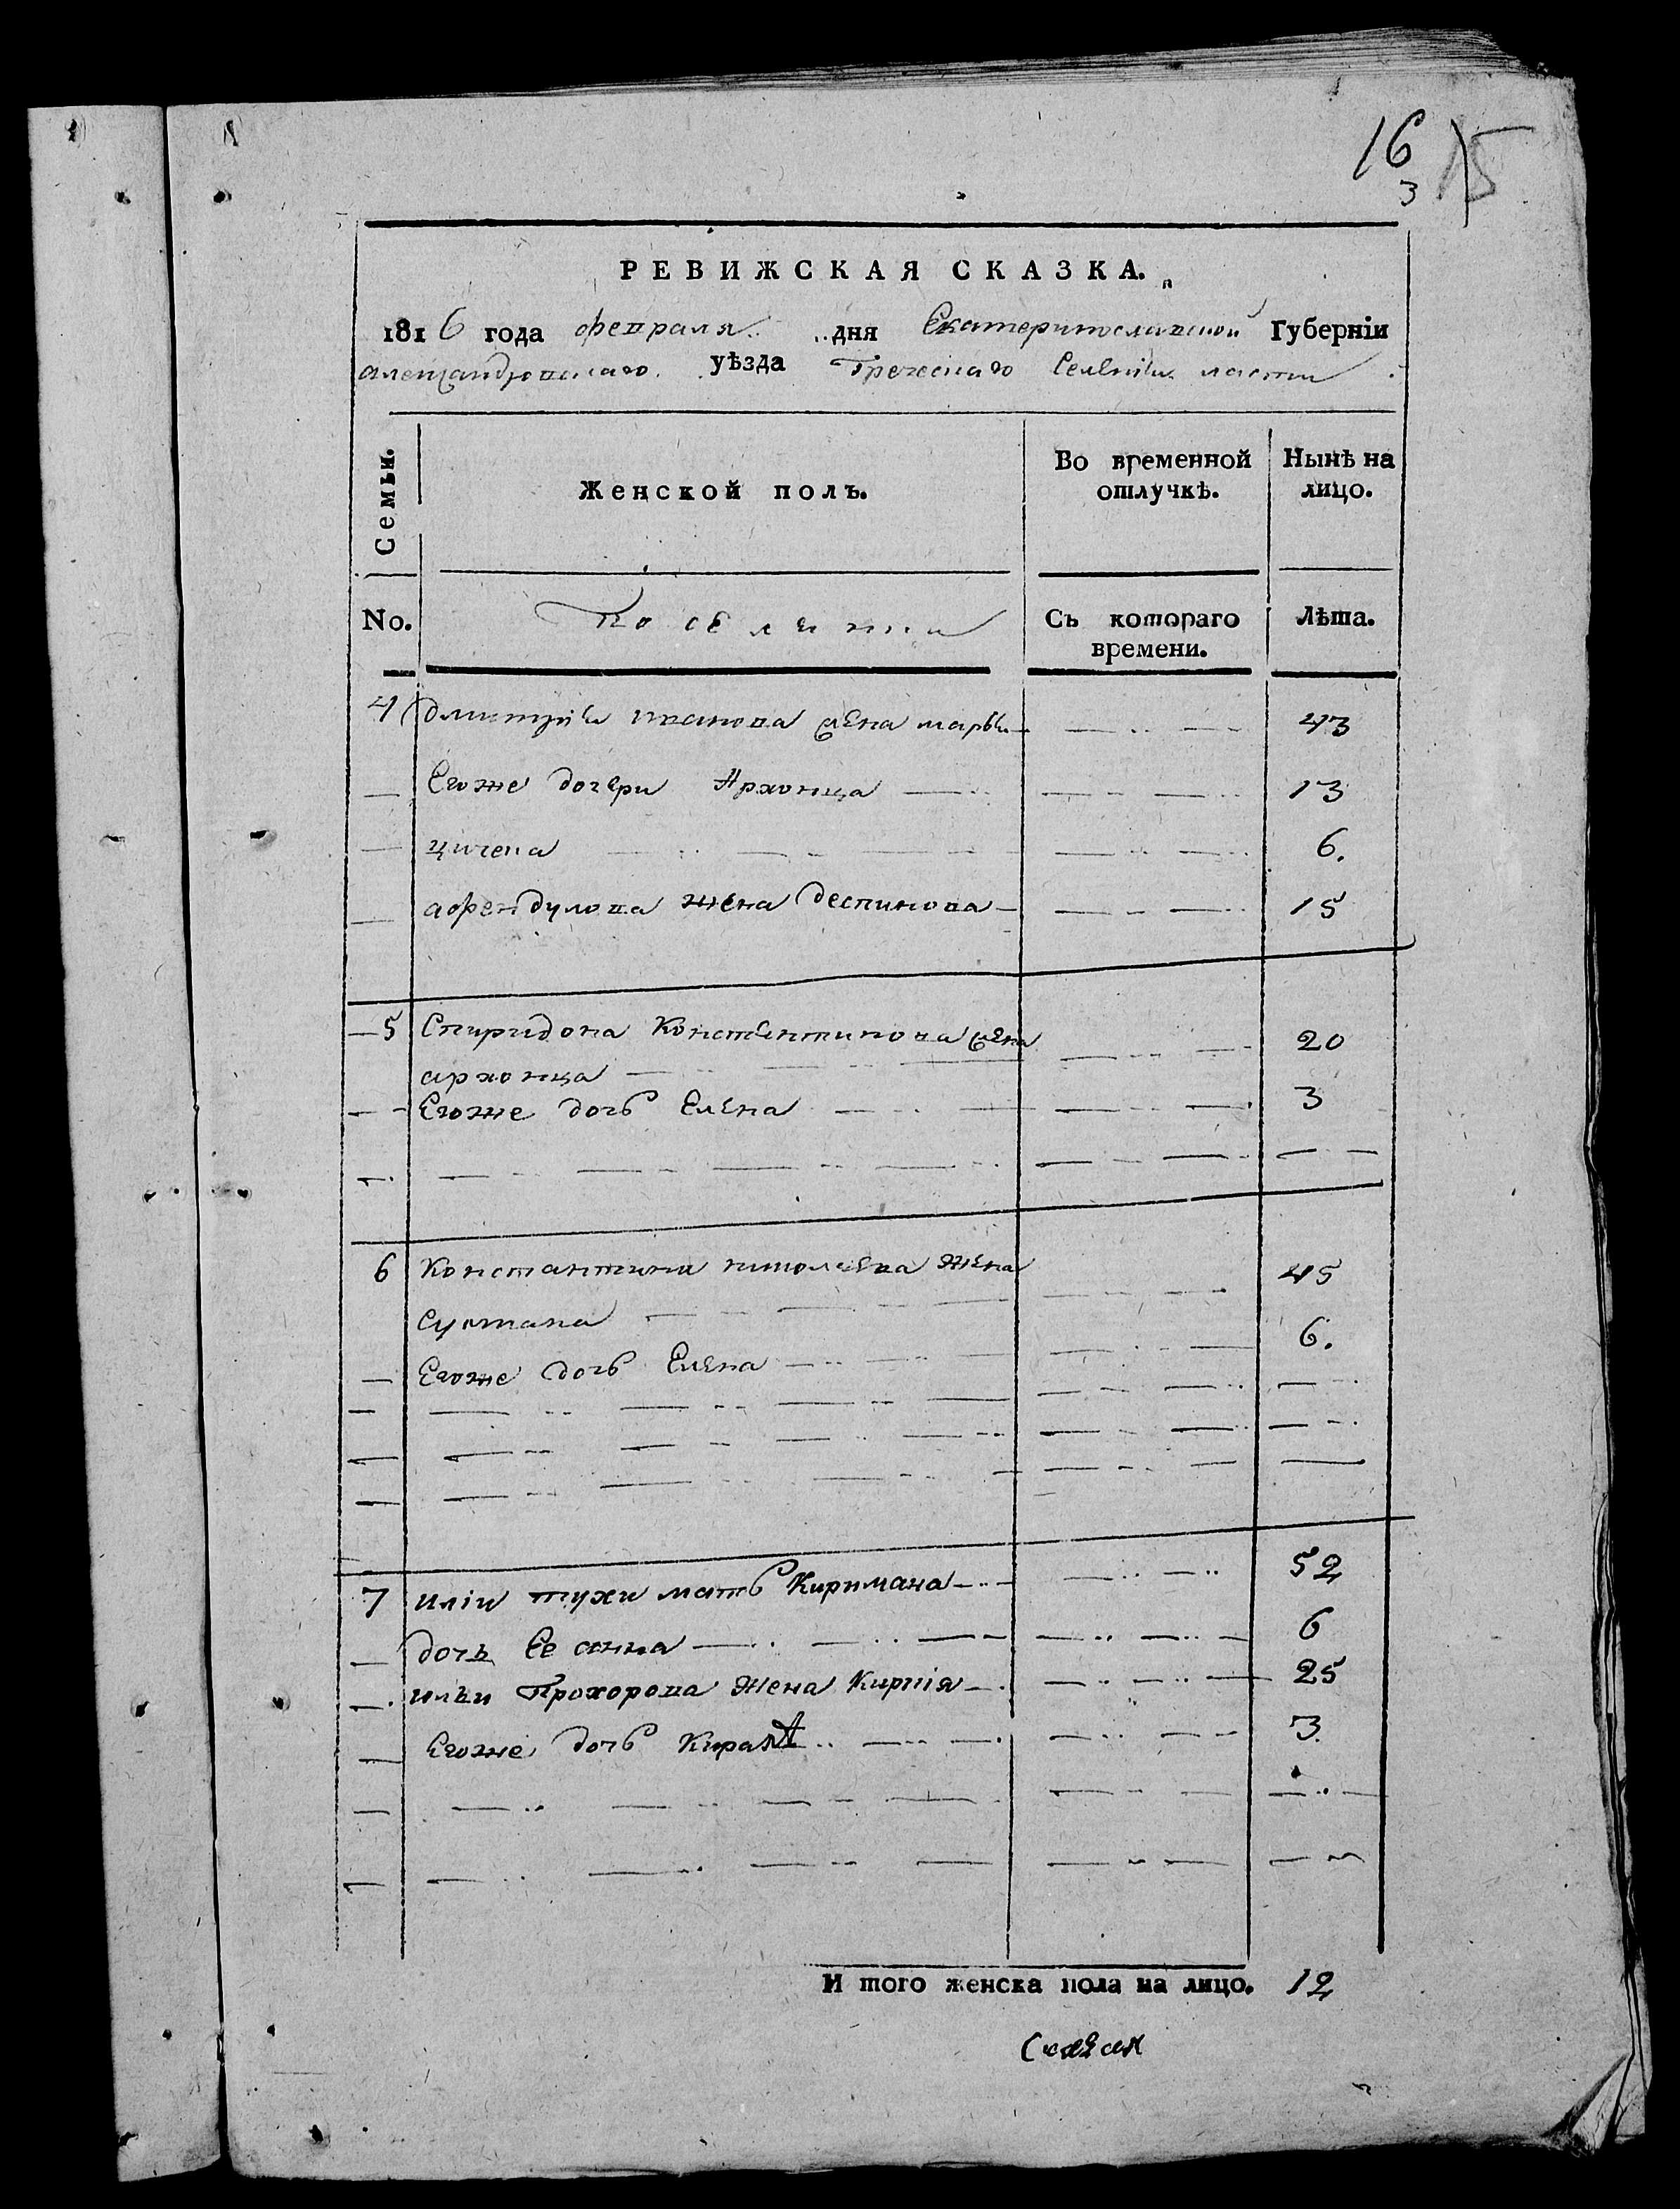 16
3
15
РЕВИЖСКАЯ СКАЗКА.
1816 года февраля дня Екатеринославской Губерніи
александровскаго уѣзда Греческаго Селенія
Семьи.
Женской полъ.
Во временной отлучкѣ.
Нынѣ на лицо.
No.
Поселянки
Съ котораго времени.
Лѣта.
4 Дмитрія иванова жена марья 43
Егоже дочери Архонца 13
6.
афендулова жена деспинова 15
5 Спиридона Констентинова жена 20
архонца
Егоже дочь Елена 3
6 Константина николаева жена 45
Султана
Егоже дочь Елена 6.
7 иліи тухи мать Киримана 52
дочь Ее анна 6
ильи Прохорова жена Кирпія 25
Егоже дочь Кира 3
И того женска пола на лицо. 12